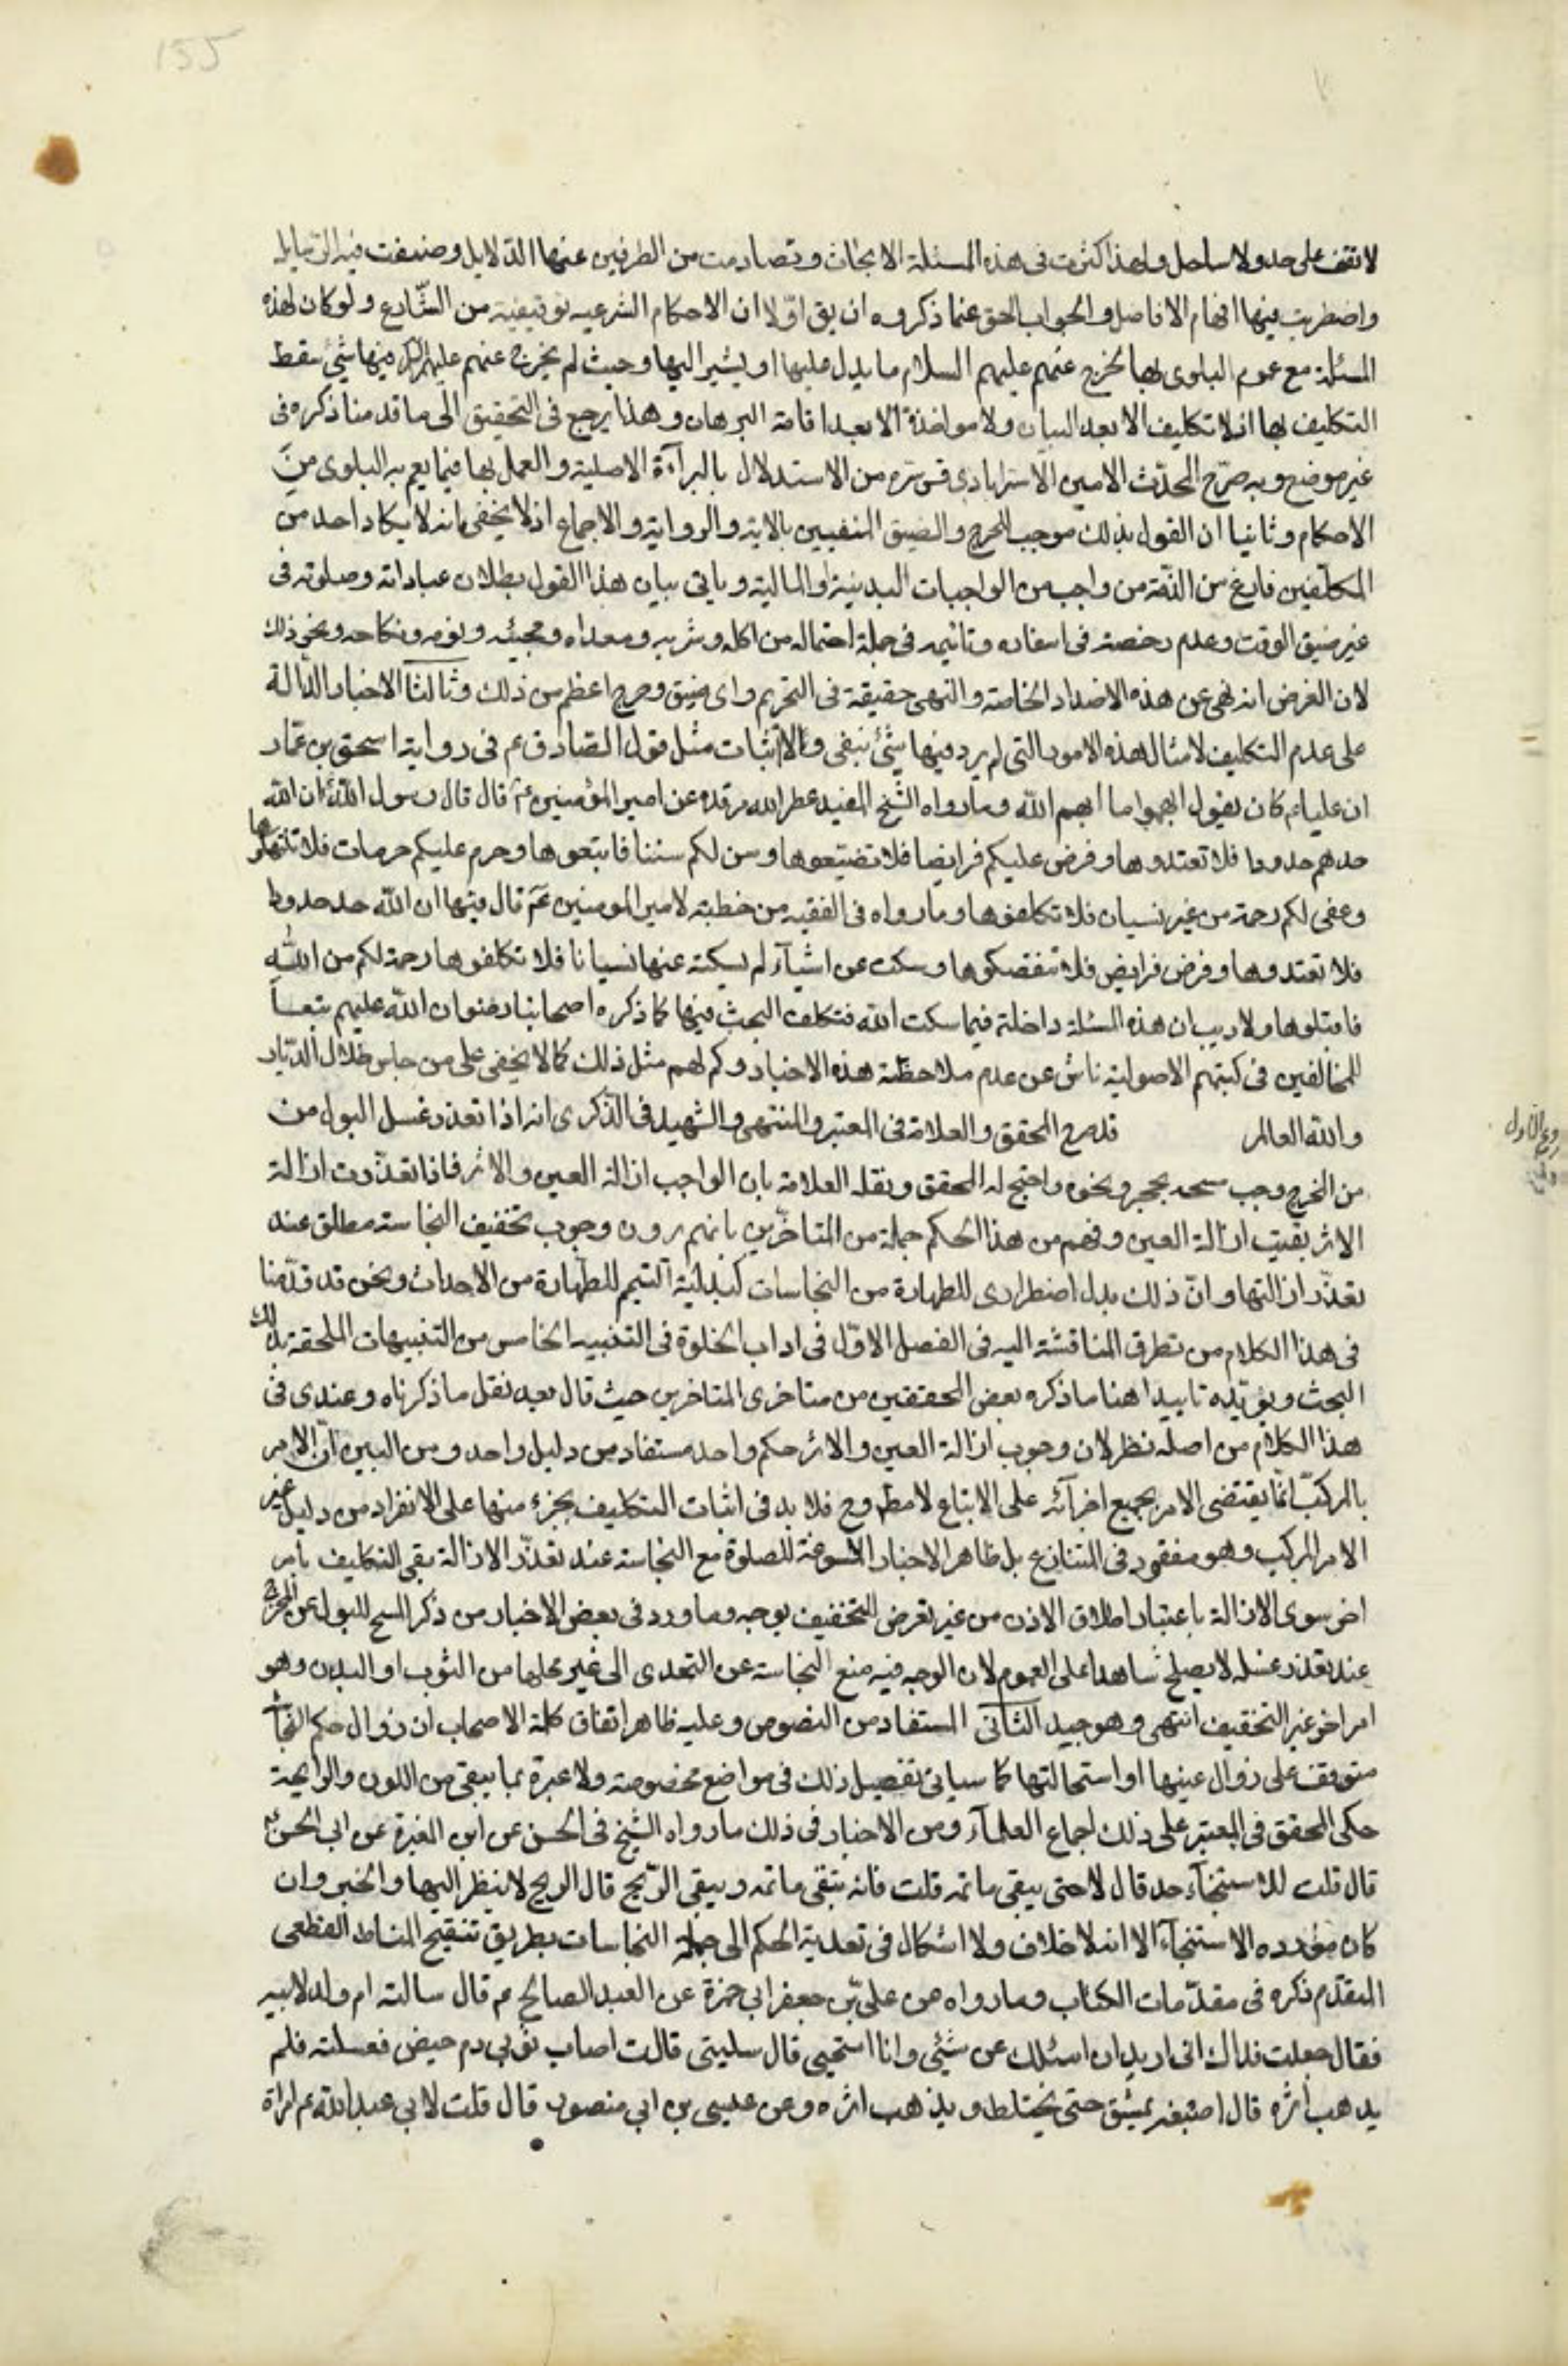 155
لا تقف على حد ولا ساحل ولهذا كثرت فى هذه المسئلة الابحاث وتصادمت من الطرفين عنها الدلايل وصنفت فيه الرسايل
واضطربت فيها افهام الافاضل والجواب الحق عنما ذكروه ان يق اوّلا ان الاحكام الشرعيه توقيفية من الشّارع ولو كان لهذه
المسئلة مع عموم البلوى بها لخرج عنهم عليهم السلام ما يدل عليها او يشير اليها وحيث لم يخرج عنهم عليهم فيها شئ سقط
التكليف بها اذ لا تكليف الا بعد البيان ولا مواخذة الا بعد اقامة البرهان وهذا يرجع فى التحقيق الى ما قدمنا ذكره فى
غير موضع وبه صرّح المحدّث الامين الاسترابادى قس سره من الاستدلال بالبرآءة الاصلية والعمل بها فيما يعم به البلوى من
الاحكام وثانيا ان القول بذلك موجب للحرج والضيق المنفيين بالاية والرواية والاجماع اذ لا يخفى انه لا يكاد احد من
المكلّفين فارغ من الذّمة من واجب من الواجبات البدنية او المالية وياتى بيان هذا القول بطلان عباداته وصلوته فى
غير ضيق الوقت وعدم رخصة فى اسفاره وتاثيمه فى جملة احتماله من اكله وشربه ومغداه ومجيئه ونومه ونكاحه ونحو ذلك
لان الغرض انه نهى عن هذه الاضداد الخاصة والنهى حقيقة فى التحريم واى ضيق وحرج اعظم من ذلك وثالثا الاخبار الدّالة
على عدم التكليف لامثال هذه الامور التى لم يرد فيها شئ بنفى ولا اثبات مثل قول الصادق ع م فى رواية اسحق بن عمّار
ان عليا ع كان يقول ابهموا ما ابهم الله وما رواه الشيخ المفيد عطر الله مرقده عن امير المؤمنين ع قال قال رسول الله ان الله
حد لكم حدودا فلا تعتدوها وفرض عليكم فرايضا فلا تضيّعوها وسن لكم سننا فاتبعوها وحرم عليكم حرمات فلا تنتهكوها
وعفى لكم رحمة من غير نسيان فلا تكلفوها وما رواه فى الفقيه من خطبة لامير المومنين ع قال فيها ان الله حد حدودا
فلا تعتدوها وفرض فرايض فلا تنقصوها وسكت عن اشيآء لم يسكت عنها نسيانا فلا تكلفوها رحمة لكم من الله
فاقبلوها ولا ريب ان هذه المسئلة داخلة فيما سكت الله فتكلف البحث فيها كما ذكره اصحابنا رضوان الله عليهم تبعا
للمخالفين فى كتبهم الاصولية ناش عن عدم ملاحظة هذه الاخبار وكم لهم مثل ذلك كما لا يخفى على من جاس خلال الدّيار
والله العالم قد صرح المحقق والعلامة فى المعتبر والمنتهى والشهيد فى الذكرى انه اذا تعذر غسل البول من
من المخرج وجب مسحه بحجر ونحوه واحتج له المحقق ونقله العلامة بان الواجب ازالة العين والاثر فاذا تعذّرت ازالة
الاثر بقيت ازالة العين وفهم من هذا الحكم جملة من المتاخّرين بانهم يرون وجوب تخفيف النجاسة مطلق عند
تعذّر ازالتها وانّ ذلك بدل اضطرارى للطهارة من النجاسات كبدلية التيمم للطهارة من الاحداث ونحن قد قدّمنا
فى هذا الكلام من تطرق المناقشة اليه فى الفصل الاوّل فى اداب الخلوة فى التنبيه الخامس من التنبيهات الملحقة بذلك
البحث ويؤيّده تاييدا هنا ما ذكره بعض المحققين من متاخرى المتاخرين حيث قال بعد نقل ما ذكرناه وعندى فى
هذا الكلام من اصله نظر لان وجوب ازالة العين والاثر حكم واحد مستفاد من دليل واحد ومن البين انّ الامر
بالمركّب انّما يقتضى الامر بجميع اجزآئه على الاجتماع لا مطلقا وح فلا بد فى اثبات التكليف بجزء منها على الانفراد من دليل غير
الامر المركب وهو مفقود فى المتنازع بل ظاهر الاخبار المسوغة للصلوة مع النجاسة عند تعذّر الازالة نفى التكليف بامر
اخر سوى الازالة باعتبار اطلاق الاذن من غير تعرض للتخفيف بوجه وما ورد فى بعض الاخبار من ذكر المسح للبول عن المخرج
عند تعذر غسله لا يصلح شاهدا على العموم لان الوجه فيه منع النجاسة عن التعدى الى غير محلها من الثوب او البدن وهو
امر اخر غير التخفيف انتهى وهو جيد الثانى المستفاد من النصوص وعليه ظاهر اتفاق كلمة الاصحاب ان زوال حكم النجاسة
متوقف على زوال عينها او استحالتها كما سياتى تفصيل ذلك فى مواضع مخصوصة ولا عبرة بما يبقى من اللون والرايحة
حكى المحقق فى المعتبر على ذلك اجماع العلمآء ومن الاخبار فى ذلك ما رواه الشيخ فى الحسن عن ابن المغيرة عن ابى الحسن ع
قال قلت للاستنجآء حد قال لا حتى ينقى ماثمه قلت فانه ينقى ماثمه ويبقى الرّيح قال الريح لا ينظر اليها والخبر وان
كان مورده الاستنجآء الا انه لا خلاف ولا اشكال فى تعدية الحكم الى جملة النجاسات بطريق تنقيح المناط القطعى
المتقدّم ذكره فى مقدّمات الكتاب وما رواه عن علىّ بن جعفر ابى حمزة عن العبد الصالح ع م قال سالته ام ولد لابيه
فقال جعلت فداك انى اريد ان اسئلك عن شئى وانا استحيى قال سلينى قالت اصاب ثوبى دم حيض فغسلته فلم
يذهب اثره قال اصبغيه بمشق حتى يختلط ويذهب اثره وعن عيسى بن ابى منصور قال قلت لابى عبد الله ع م امراة